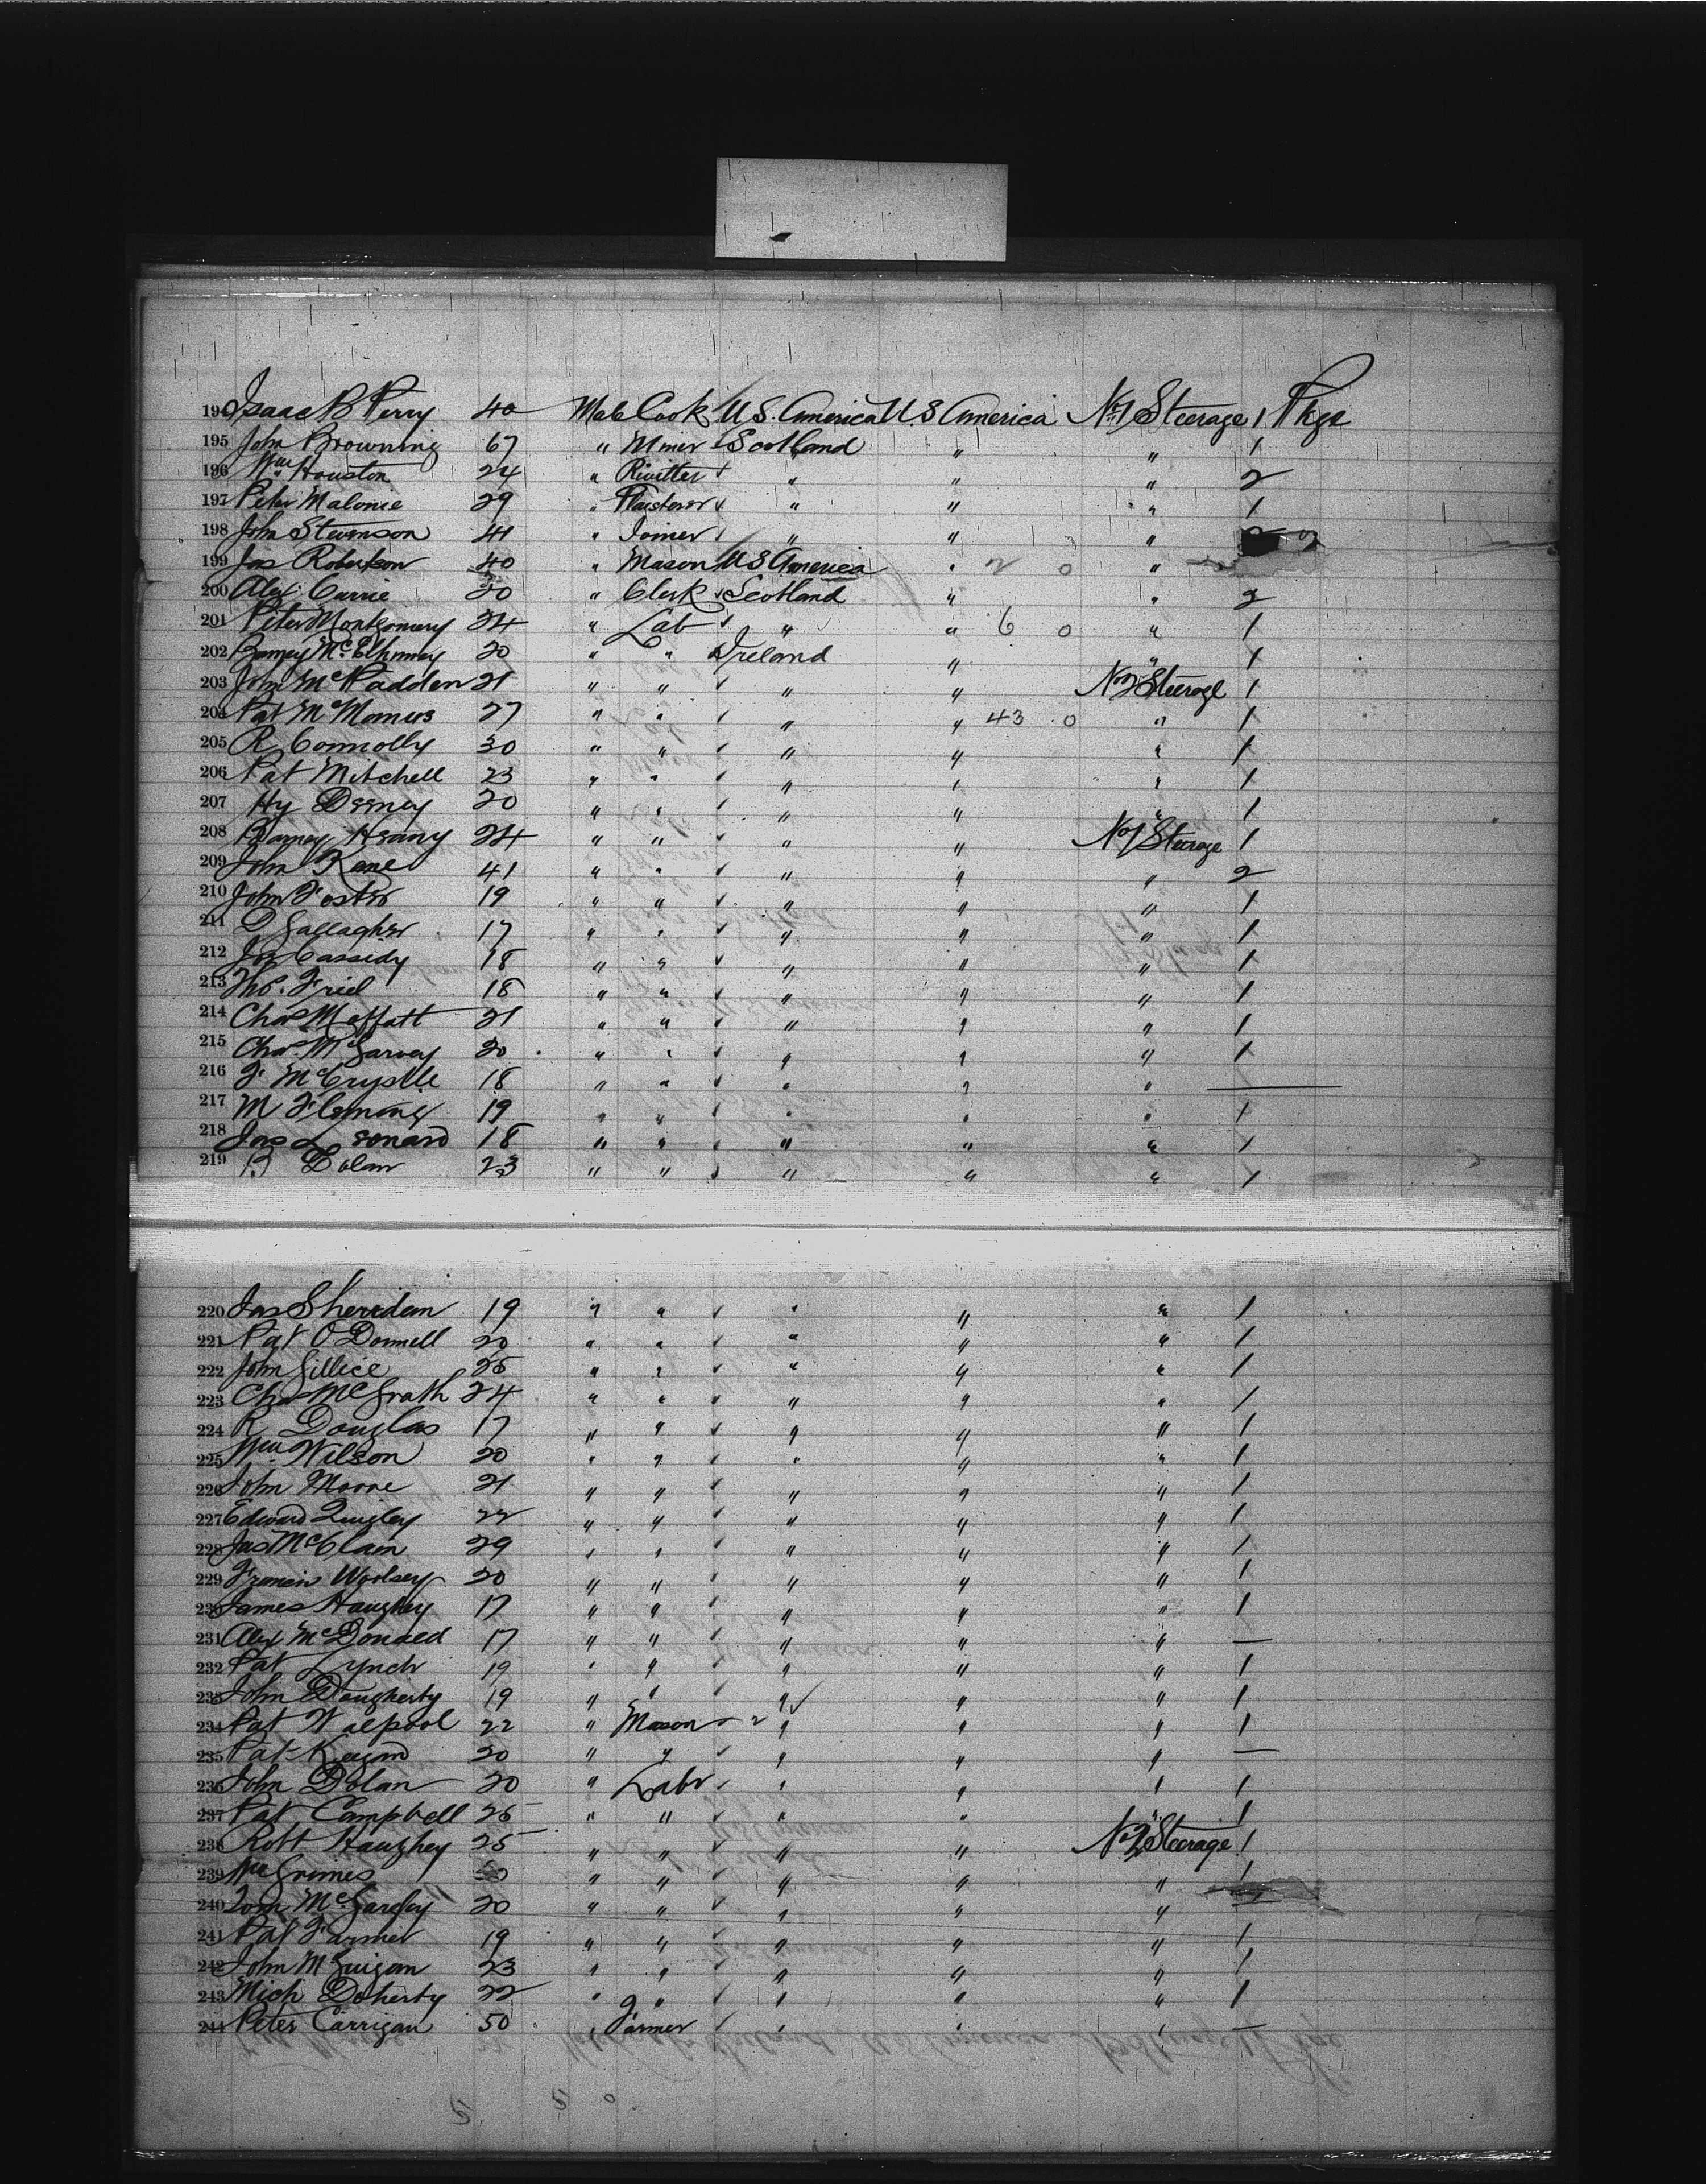 194 Isaac B Perry 40 Male Cook U.S. America U S America No 1 Steerage 1 Pkge
195 John Browning 67 " Miner Scotland " " 1
196 Wm Houston 24 " Rivitter " " " 2
197 Peter Malonie 29 " Plaisterer " " " 1
198 John Stevenson 41 " Joiner " " "
199 Jas Robertson 40 " Mason U S America " 2 0 "
200 Alex Currie 20 " Clerk Scotland " " 2
201 Peter Montgomery 24 " Lab " " 6 0 " 1
202 Barney McElhinney 20 " " Ireland " " 1
203 John McPadden 21 " " " " No 2 Steerage 1
204 Pat McManus 27 " " " " 43 0 " 1
205 R Connolly 30 " " " " " 1
206 Pat Mitchell 23 " " " " " 1
207 Hy Deeney 20 " " " " " 1
208 Barney Heany 24 " " " " No 1 Steerage 1
209 John Kane 41 " " " " " 2
210 John Foster 19 " " " " " 1
211 D Gallagher 17 " " " " " 1
212 Jas Cassidy 18 " " " " " 1
213 Tho. Friel 18 " " " " " 1
214 Chas Moffatt 21 " " " " " 1
215 Chas. McGarvey 20 " " " " " 1
216 F McCrystle 18 " " " " " —
217 M Fleming 19 " " " " " 1
218 Jas Leonard 18 " " " " " 1
219 B Dolan 23 " " " " " 1
220 Jas Sherridan 19 " " " " " 1
221 Pat O'Donnell 20 " " " " " 1
222 John Gillice 25 " " " " " 1
223 Chas McGrath 24 " " " " " 1
224 R Douglas 17 " " " " " 1
225 Wm Wilson 20 " " " " " 1
226 John Moore 21 " " " " " 1
227 Edward Quigley 22 " " " " " 1
228 Jas McClain 29 " " " " " 1
229 Francis Woolsey 20 " " " " " 1
230 James Haughey 17 " " " " " 1
231 Alex McDonald 17 " " " " " —
232 Pat Lynch 19 " " " " " 1
233 John Daugherty 19 " " " " " 1
234 Pat Walpool 22 " Mason " " " 1
235 Pat Keegan 20 " " " " " —
236 John Dolan 20 " Labr " " " 1
237 Pat Campbell 25 " " " " " 1
238 Robt Haughey 25 " " " " No 2 Steerage 1
239 Wm Grimes " " " " " 1
240 Tom McGarvey 20 " " " " "
241 Pat Farmer 19 " " " " " 1
242 John McGuigan 23 " " " " " 1
243 Mich Doherty 22 " " " " " 1
244 Peter Carrigan 50 " Farmer " " " —